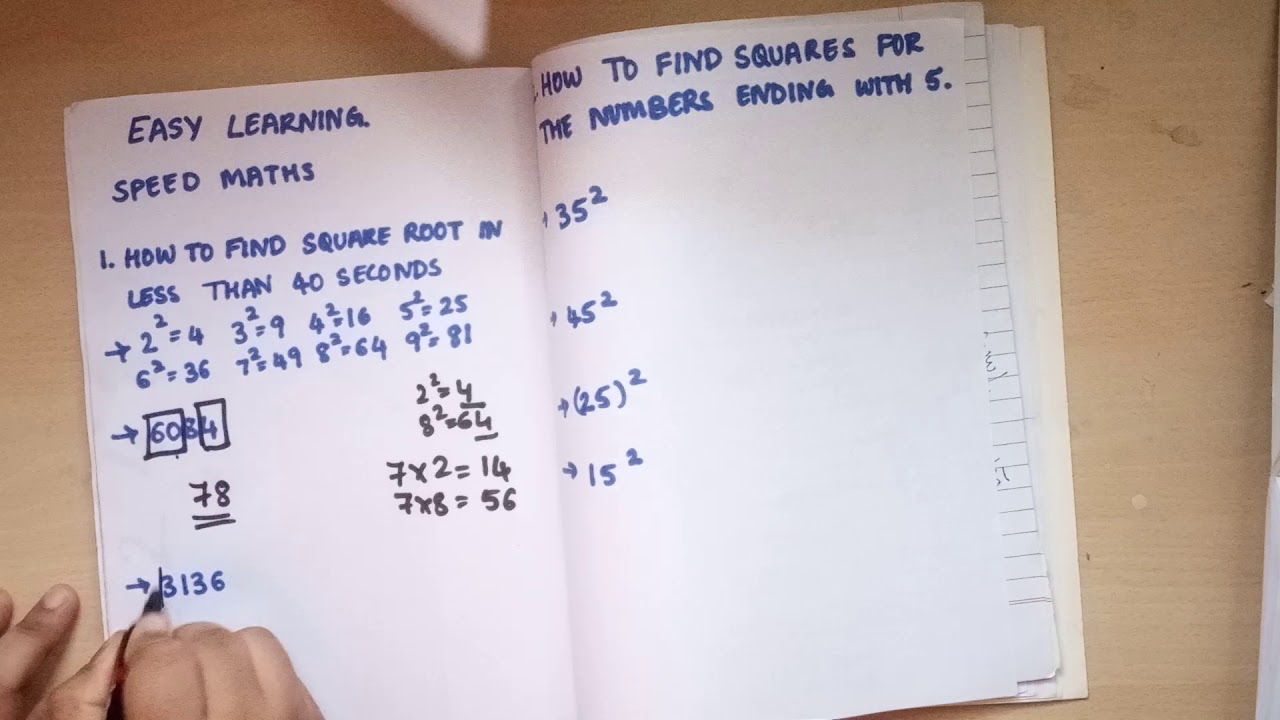 EASY LEARNING.
SPEED MATHS
1. HOW TO FIND SQUARE ROOT IN
LESS THAN 40 SECONDS
→ 2²=4 3²=9 4²=16 5²=25
6²=36 7²=49 8²=64 9²=81
→ 6034
78
2²=4
8²=64
7×2=14
7×8=56
→ 3136
HOW TO FIND SQUARES FOR
THE NUMBERS ENDING WITH 5.
→ 35²
→ 45²
→ (25)²
→ 15²